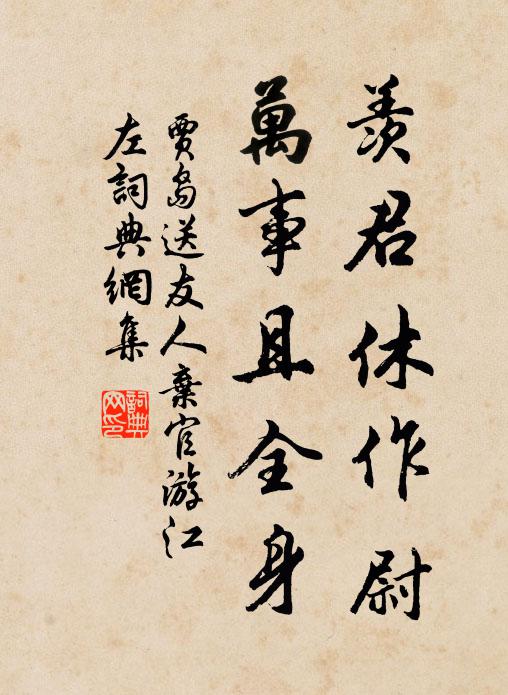 羡君休作尉
萬事且全身
賈島送友人棄官游江
左詞典網集
詞典
网印